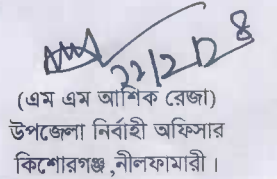 22/2/28
(এম এম আশিক রেজা)
উপজেলা নির্বাহী অফিসার
কিশোরগঞ্জ ,নীলফামারী।